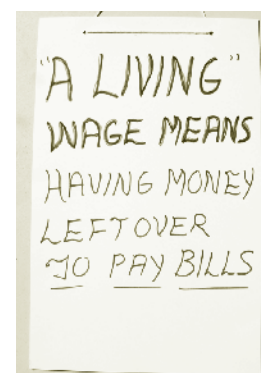 "A LIVING"
WAGE MEANS
HAVING MONEY
LEFTOVER
TO PAY BILLS